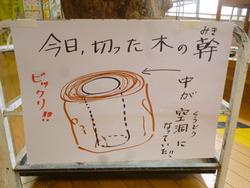 今日,切った木の幹
みき
ビックリ!!
中が空洞に
くうどう
なっていた!!